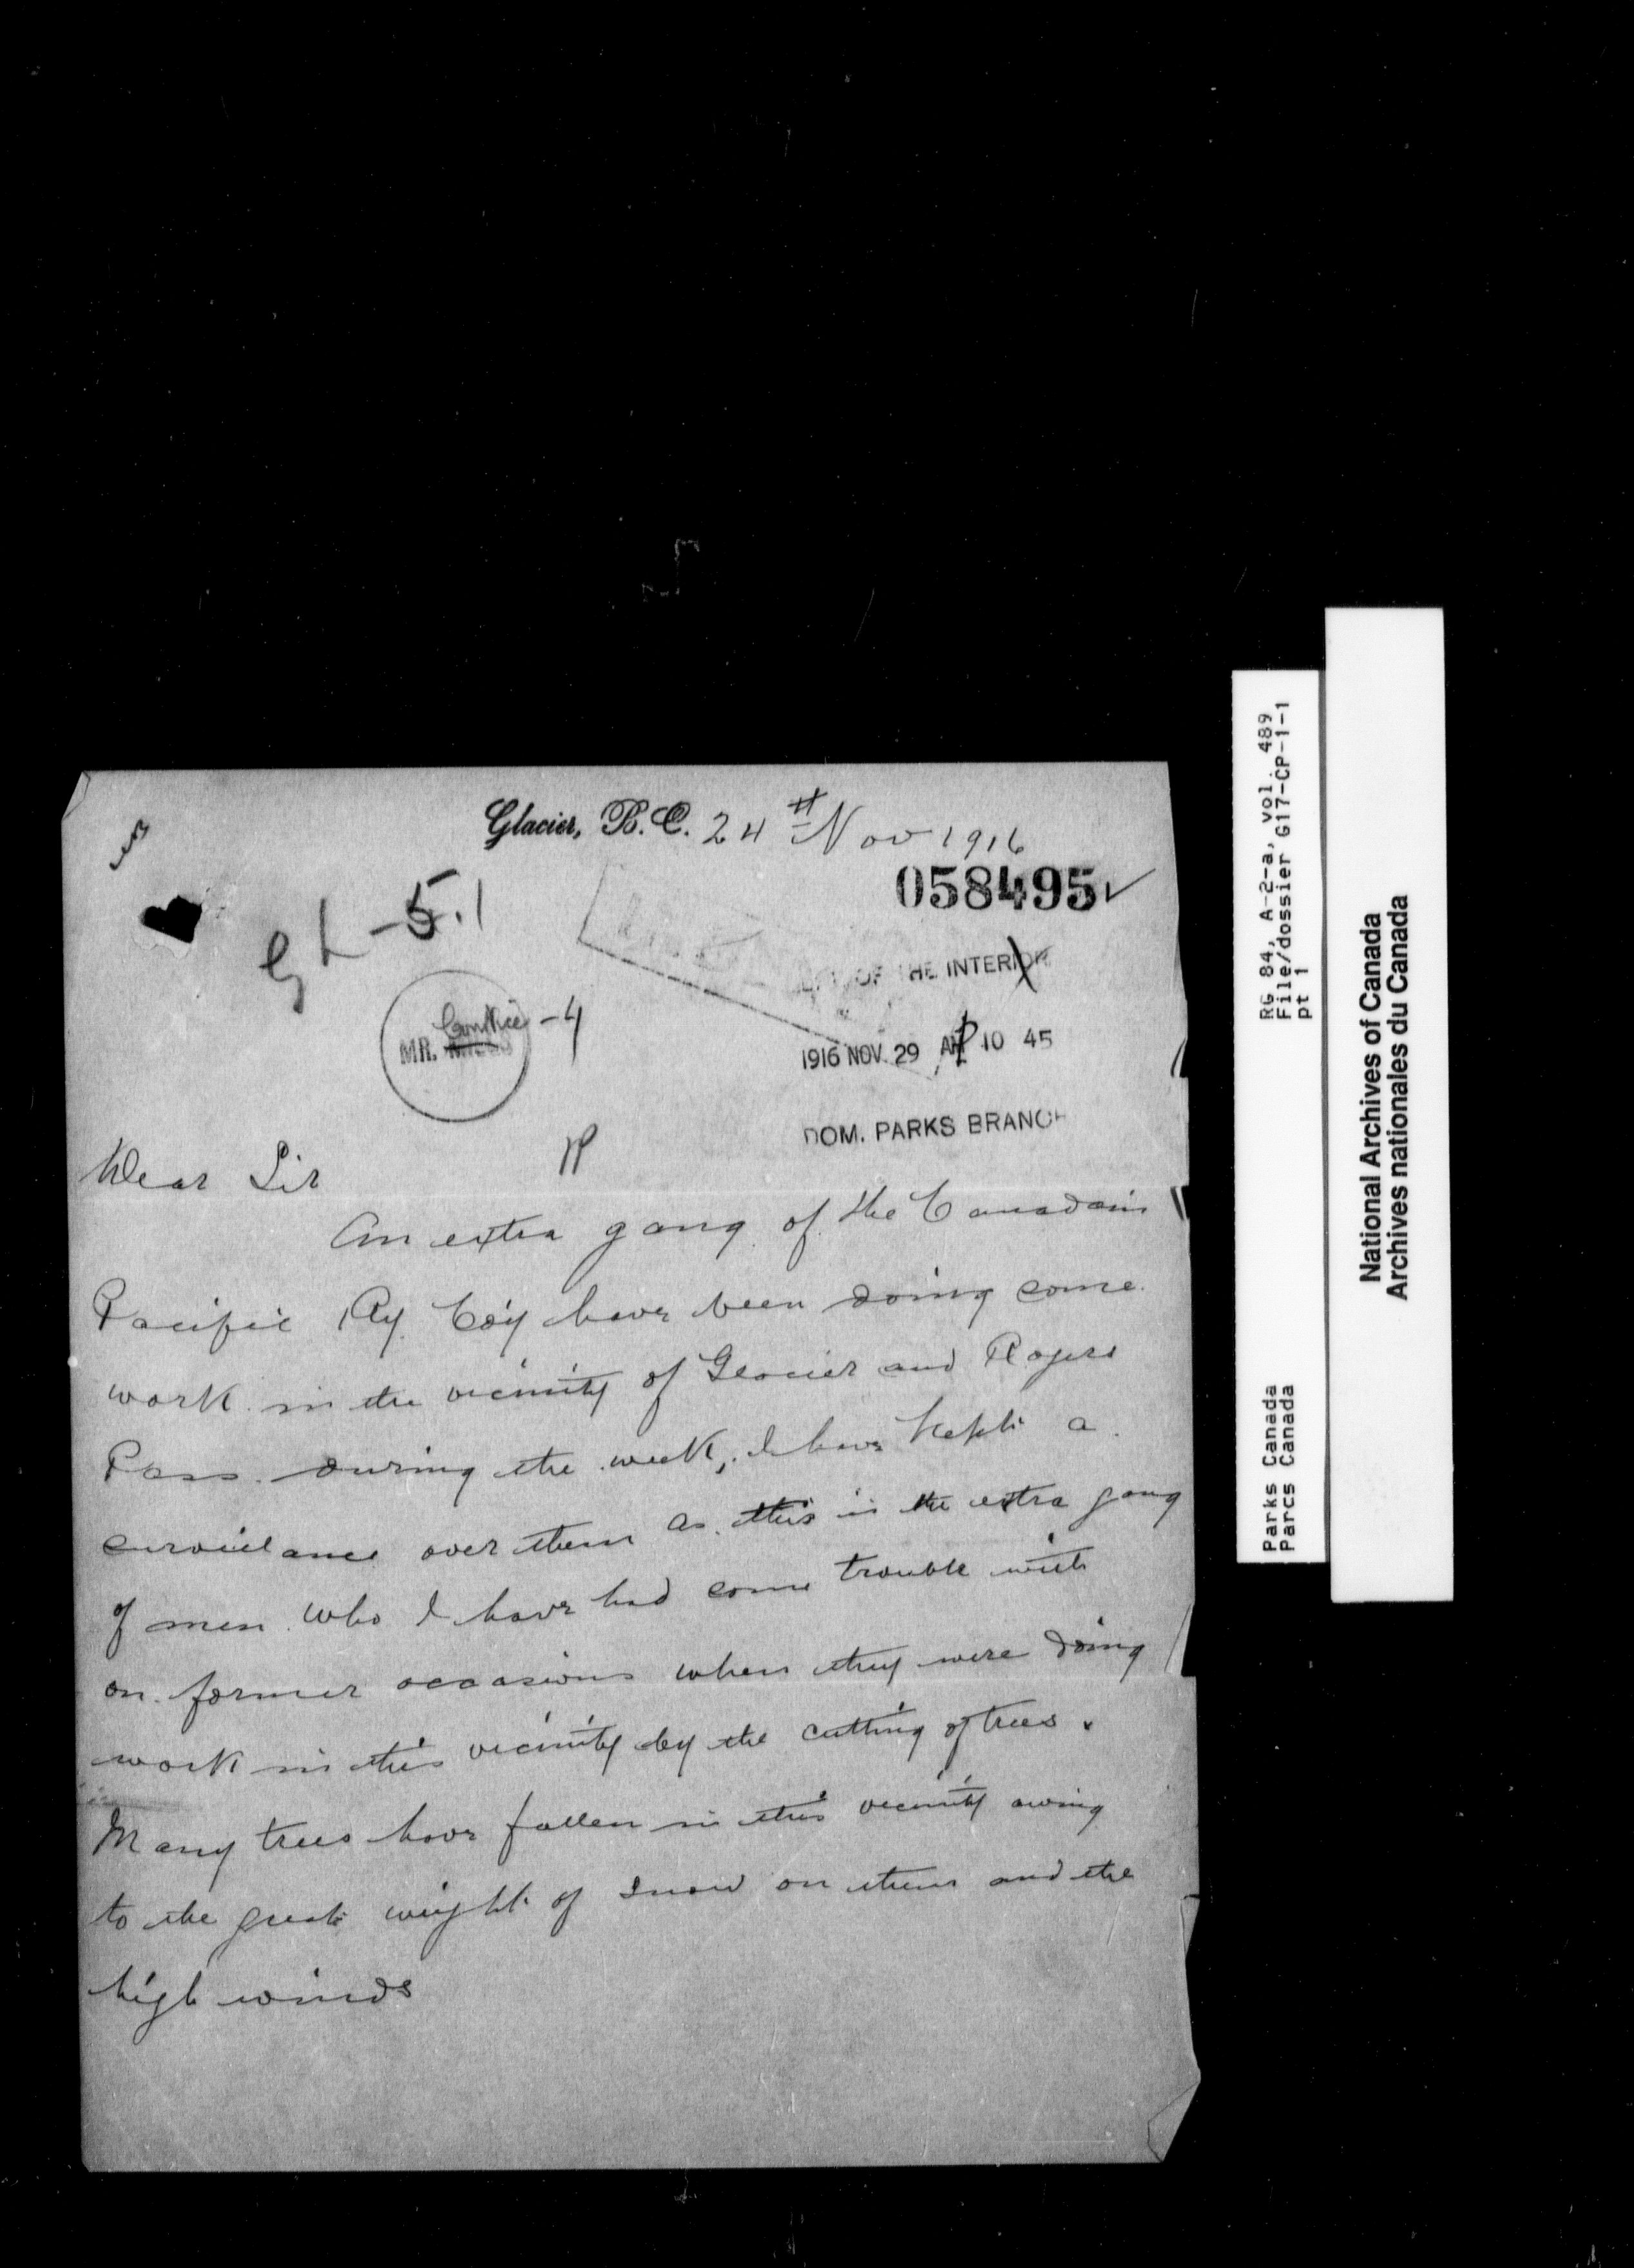 Glacier, B.C. 24th Nov 1916
058495
GL-5.1
DEPT. OF THE INTERIOR
MR. -4
1916 NOV. 29 AM 10 45
DOM. PARKS BRANCH
Dear Sir
An extra gang of the Canadain
Pacific Ry. Co'y have been doing some
work in the vicinity of Glacier and Rogers
Pass during the week, I have kept a
surveilance over them as this is the extra gang
of men who I have had some trouble with
on former occasions when they were doing
work in this vicinity by the cutting of trees.
Many trees have fallen in this vicinity owing
to the great weight of snow on them and the
high winds
RG 84, A-2-a, vol. 489
File/dossier G17-CP-1-1
pt 1
Parks Canada
Parcs Canada
National Archives of Canada
Archives nationales du Canada